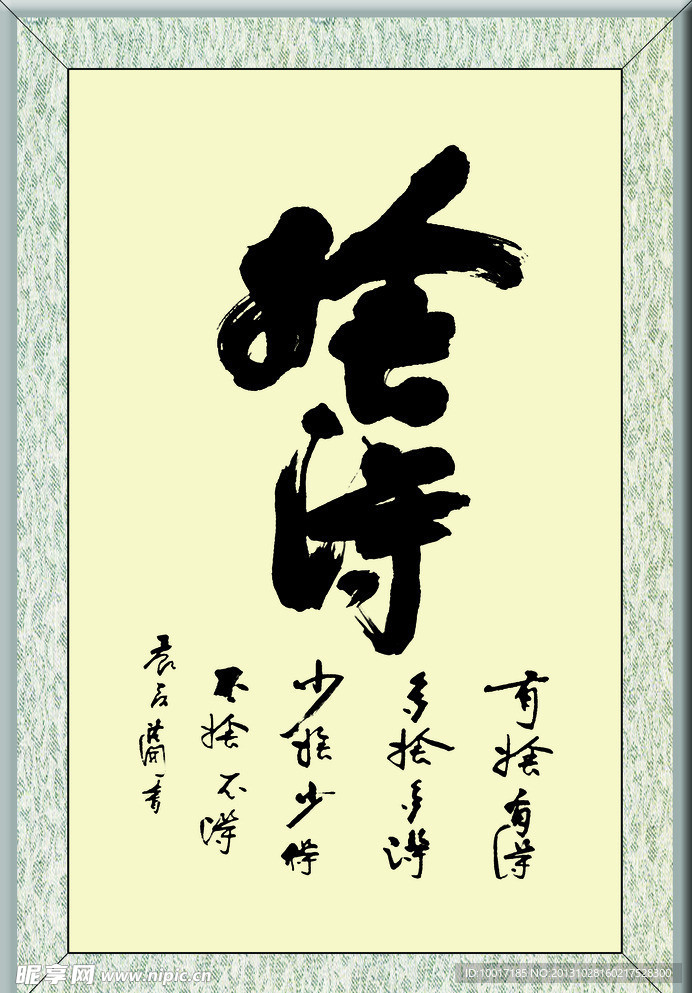 捨得
有捨有得
多捨多得
少捨少得
不捨不得
昵享网 www.nipic.cn
ID:10017185 NO:20131028160217528300